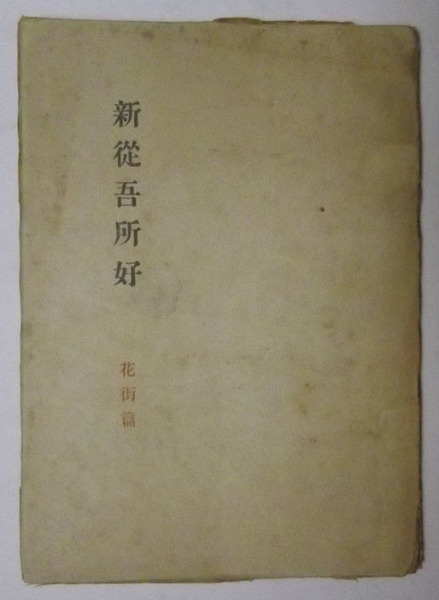 新從吾所好
花街篇